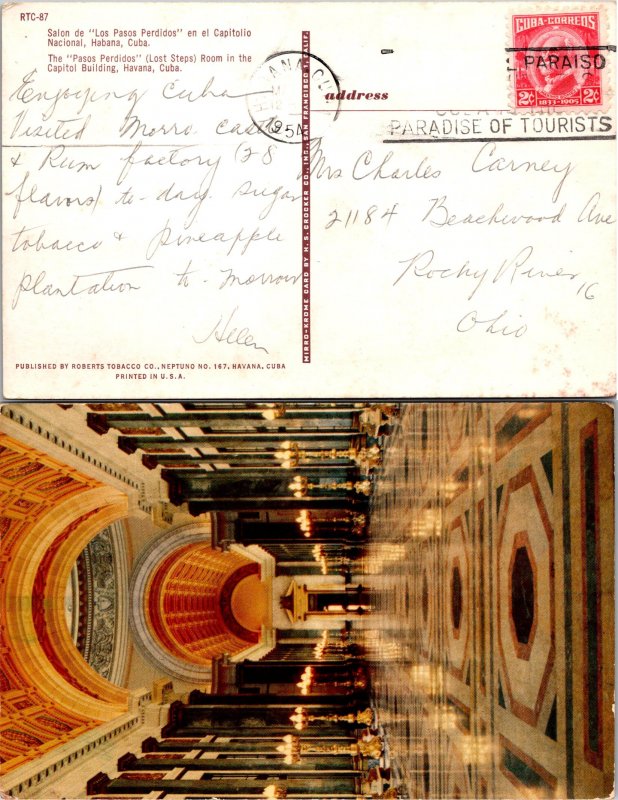 RTC-87
Salon de "Los Pasos Perdidos" en el Capitolio
Nacional, Habana, Cuba.
The "Pasos Perdidos" (Lost Steps) Room in the
Capitol Building, Havana, Cuba.
Enjoying Cuba
Visited Morro Castle
& Rum factory (28
flavors) to-day. Sugar
tobacco & pineapple
plantation to-morrow
Helen
PUBLISHED BY ROBERTS TOBACCO CO., NEPTUNO NO. 167, HAVANA, CUBA
PRINTED IN U.S.A.
MIRRO-KROME CARD BY H. S. CROCKER CO., INC., SAN FRANCISCO 1, CALIF.
address
CUBA-CORREOS
PARAISO
2¢ 1833-1905 2¢
PARADISE OF TOURISTS
Mrs Charles Carney
21184 Beachwood Ave
Rocky River 16
Ohio